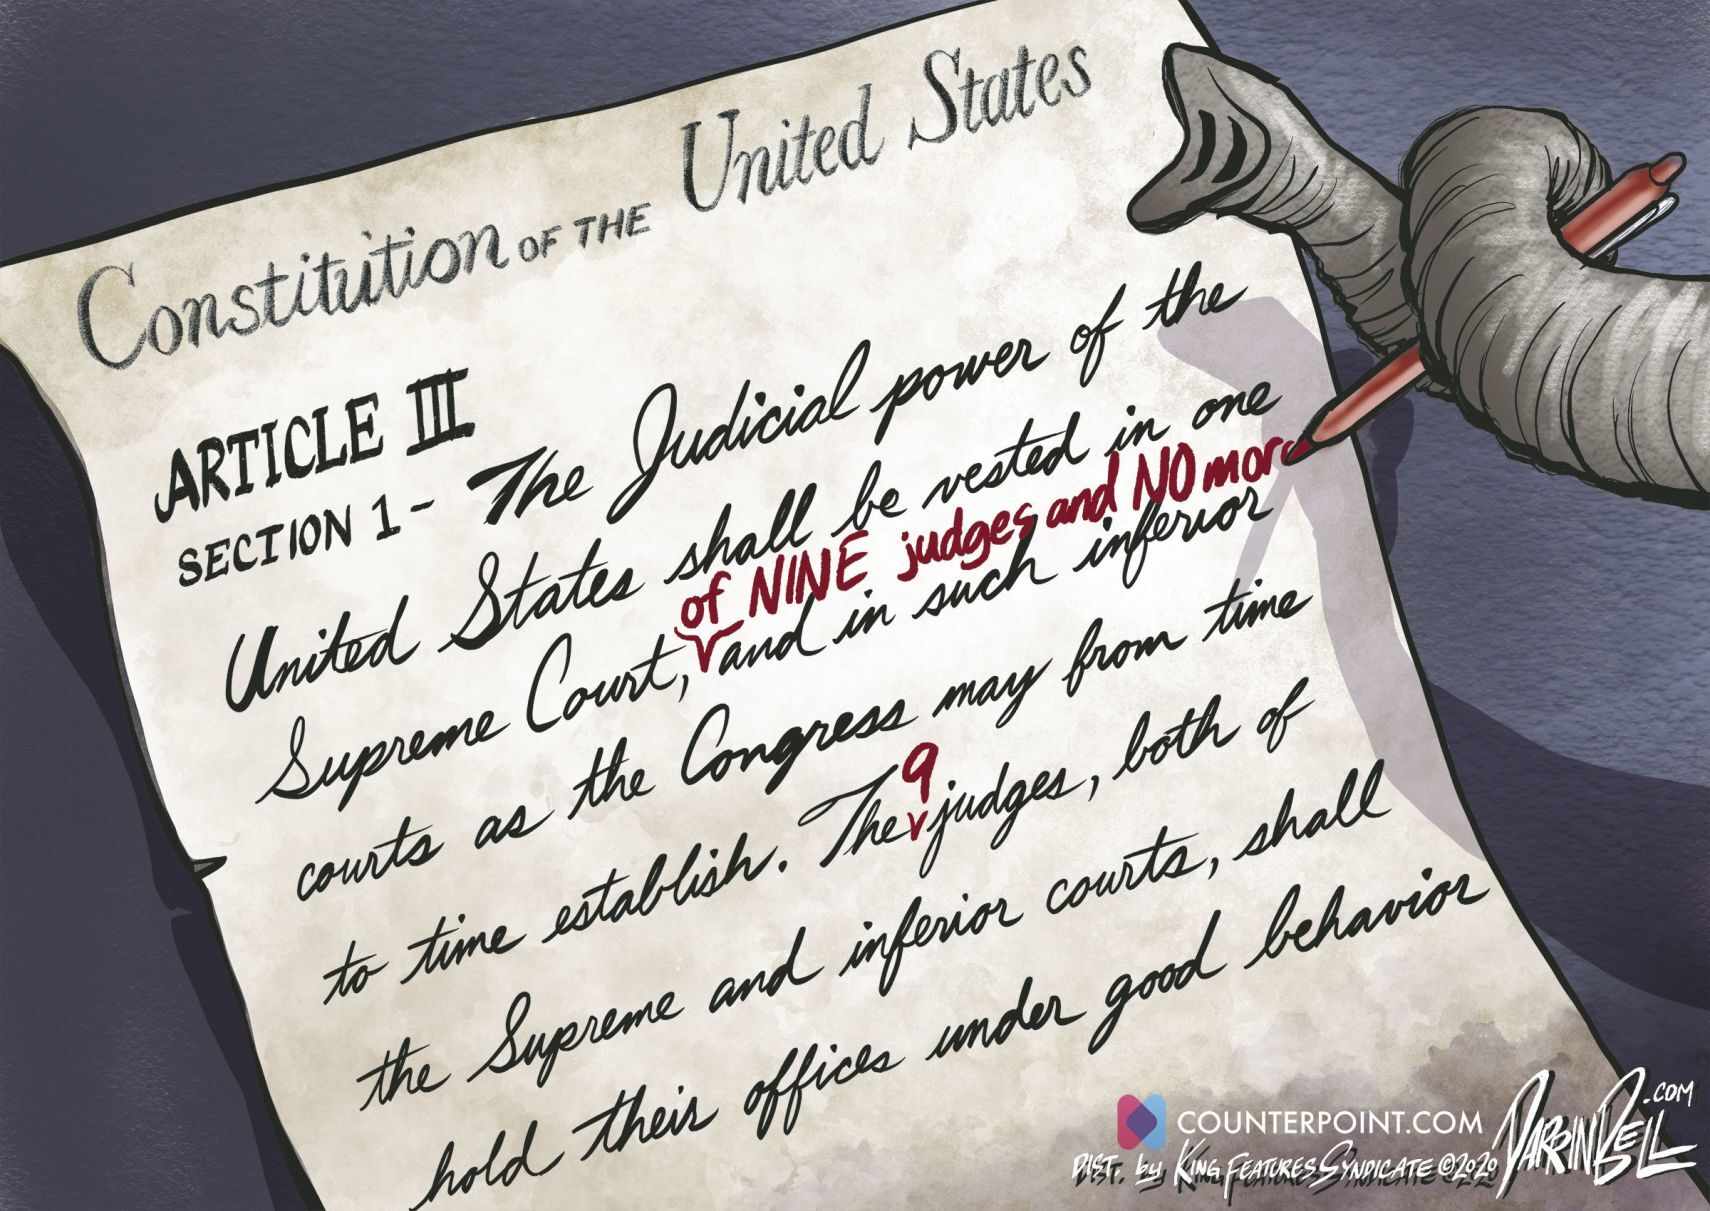 Constitution OF THE United States
ARTICLE III
SECTION 1- The Judicial power of the
United States shall be vested in one
of NINE judges and NO more
Supreme Court, and in such inferior
courts as the Congress may from time
9
to time establish. The judges, both of
the Supreme and inferior courts, shall
hold their offices under good behavior
COUNTERPOINT.COM
DARRINBELL.COM
DIST. by KING FEATURES SYNDICATE ©2020